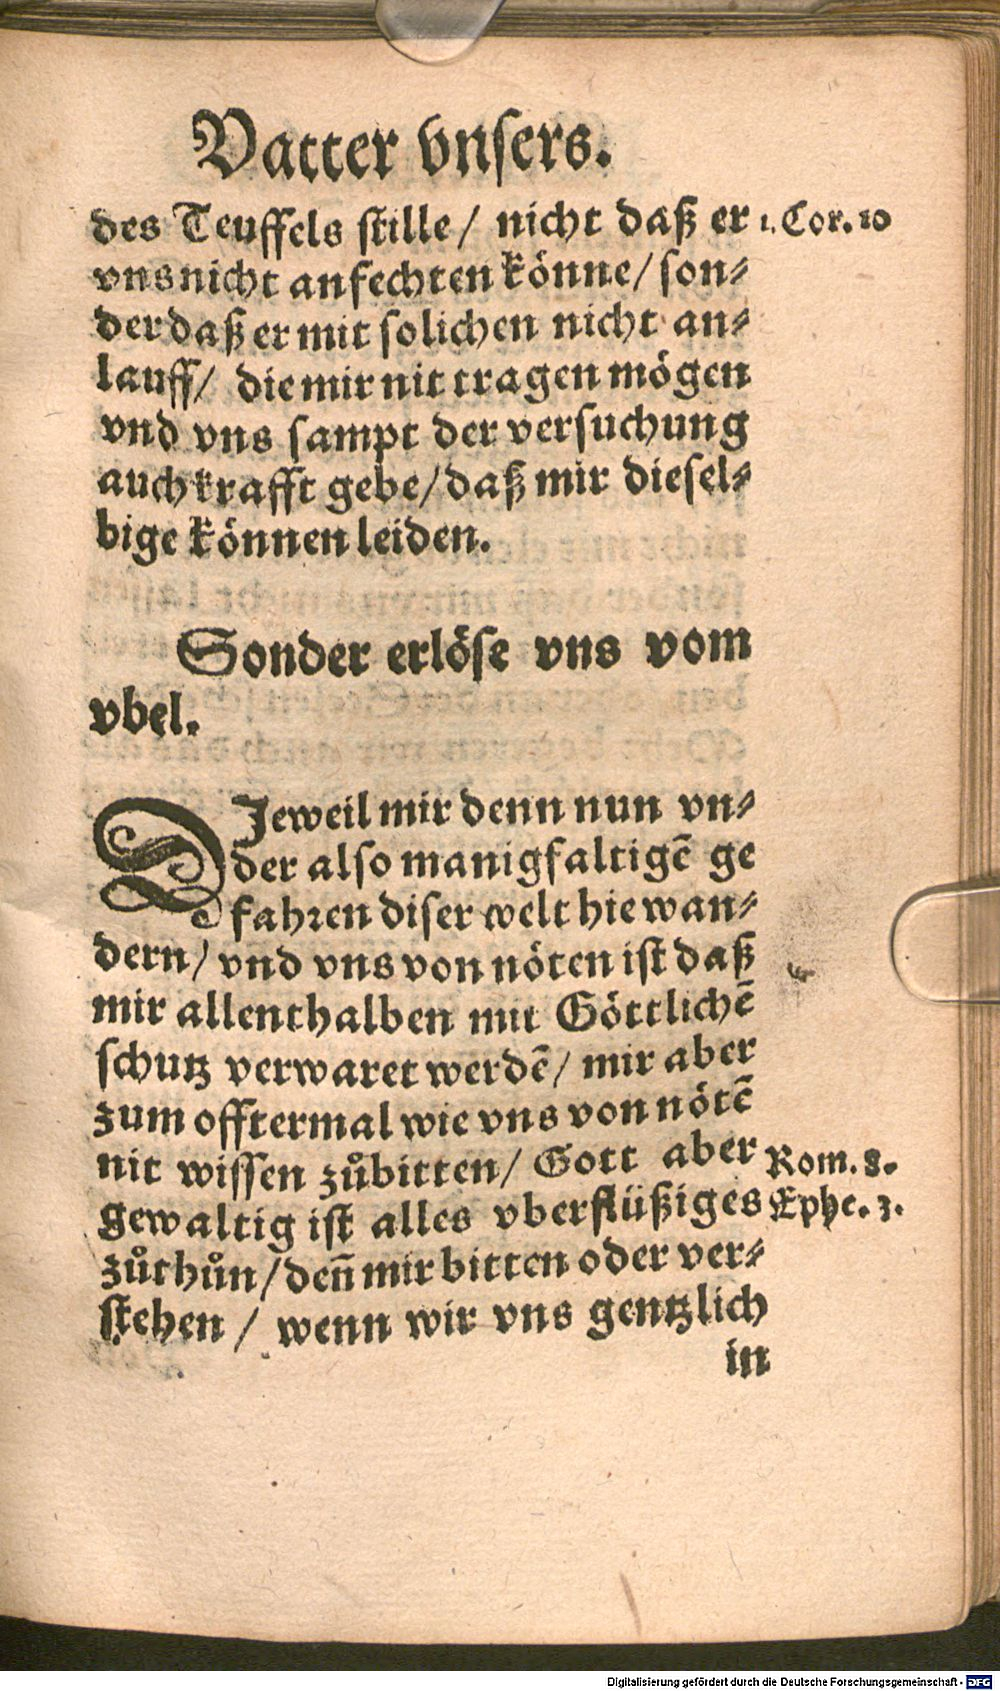 Vatter vnsers.
des Teuffels stille / nicht daß er 1. Cor. 10
vns nicht anfechten könne / son⸗
der daß er mit solichen nicht an⸗
lauff / die mir nit tragen mögen
vnd vns sampt der versuchung
auch krafft gebe / daß mir diesel⸗
bige können leiden.
Sonder erlöse vns vom
vbel.
DJeweil mir denn nun vn⸗
der also manigfaltigẽ ge
fahren diser welt hie wan⸗
dern / vnd vns von nöten ist daß
mir allenthalben mit Göttlichẽ
schutz verwaret werdẽ / mir aber
zum offtermal wie vns von nötẽ
nit wissen zůbitten / Gott aber Rom. 8.
gewaltig ist alles vberflüßiges Ephe. 3.
zůthůn / den̄ mir bitten oder ver⸗
stehen / wenn wir vns gentzlich
in
Digitalisierung gefördert durch die Deutsche Forschungsgemeinschaft - DFG